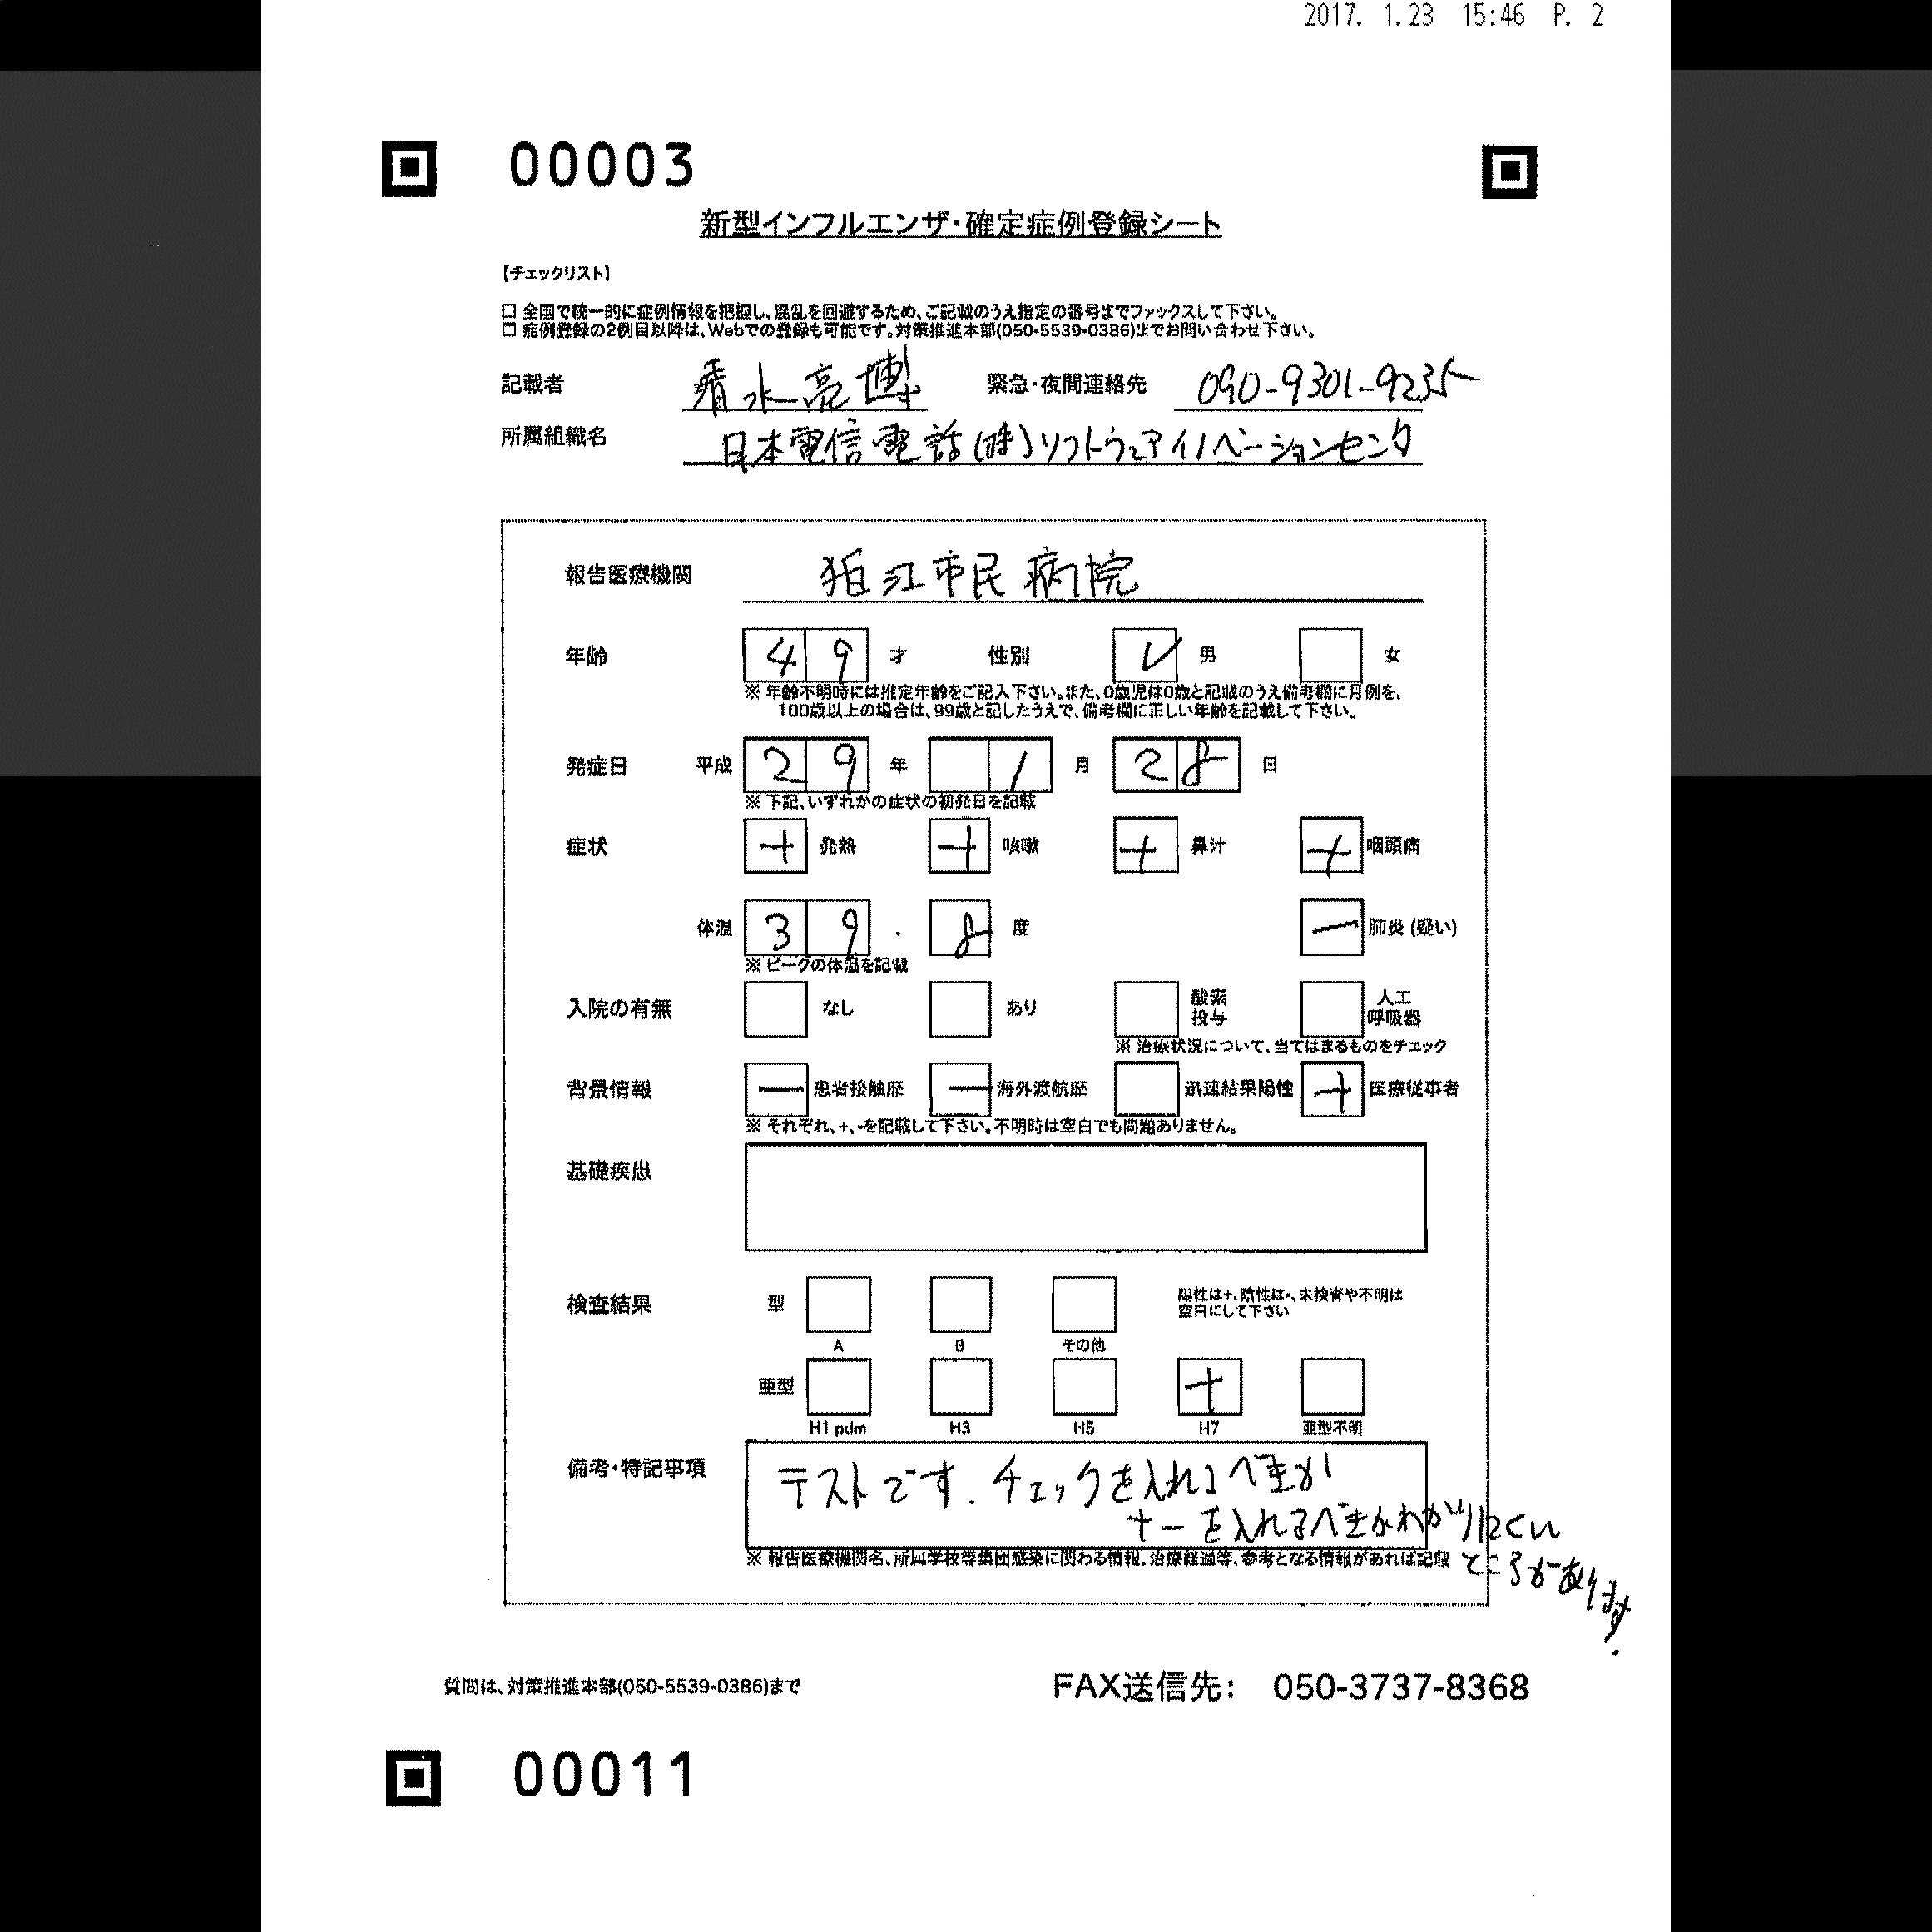 2017. 1.23 15:46 P. 2
00003
新型インフルエンザ・確定症例登録シート
【チェックリスト】
□ 全国で統一的に症例情報を把握し、混乱を回避するため、ご記載のうえ指定の番号までファックスして下さい。
□ 症例登録の2例目以降は、Webでの登録も可能です。対策推進本部(050-5539-0386)までお問い合わせ下さい。
記載者 清水亮博 緊急・夜間連絡先 090-9301-9235
所属組織名 日本電信電話(株)ソフトウェアイノベーションセンタ
報告医療機関 狛江市民病院
年齢 49 才 性別 レ 男 女
※ 年齢不明時には推定年齢をご記入下さい。また、0歳児は0歳と記載のうえ備考欄に月例を、
100歳以上の場合は、99歳と記したうえで、備考欄に正しい年齢を記載して下さい。
発症日 平成 29 年 1 月 28 日
※ 下記、いずれかの症状の初発日を記載
症状 + 発熱 + 咳嗽 + 鼻汁 + 咽頭痛
体温 39 . 8 度 - 肺炎 (疑い)
※ ピークの体温を記載
入院の有無 なし あり 酸素投与 人工呼吸器
※ 治療状況について、当てはまるものをチェック
背景情報 - 患者接触歴 - 海外渡航歴 迅速結果陽性 + 医療従事者
※ それぞれ、+、-を記載して下さい。不明時は空白でも問題ありません。
基礎疾患
検査結果 型 陽性は+、陰性は-、未検査や不明は
空白にして下さい
A B その他
亜型 +
H1 pdm H3 H5 H7 亜型不明
備考・特記事項 テストです. チェックを入れるべきか
+-を入れるべきかわかりにくい
ところがあります.
※ 報告医療機関名、所属学校等集団感染に関わる情報、治療経過等、参考となる情報があれば記載
質問は、対策推進本部(050-5539-0386)まで FAX送信先： 050-3737-8368
00011